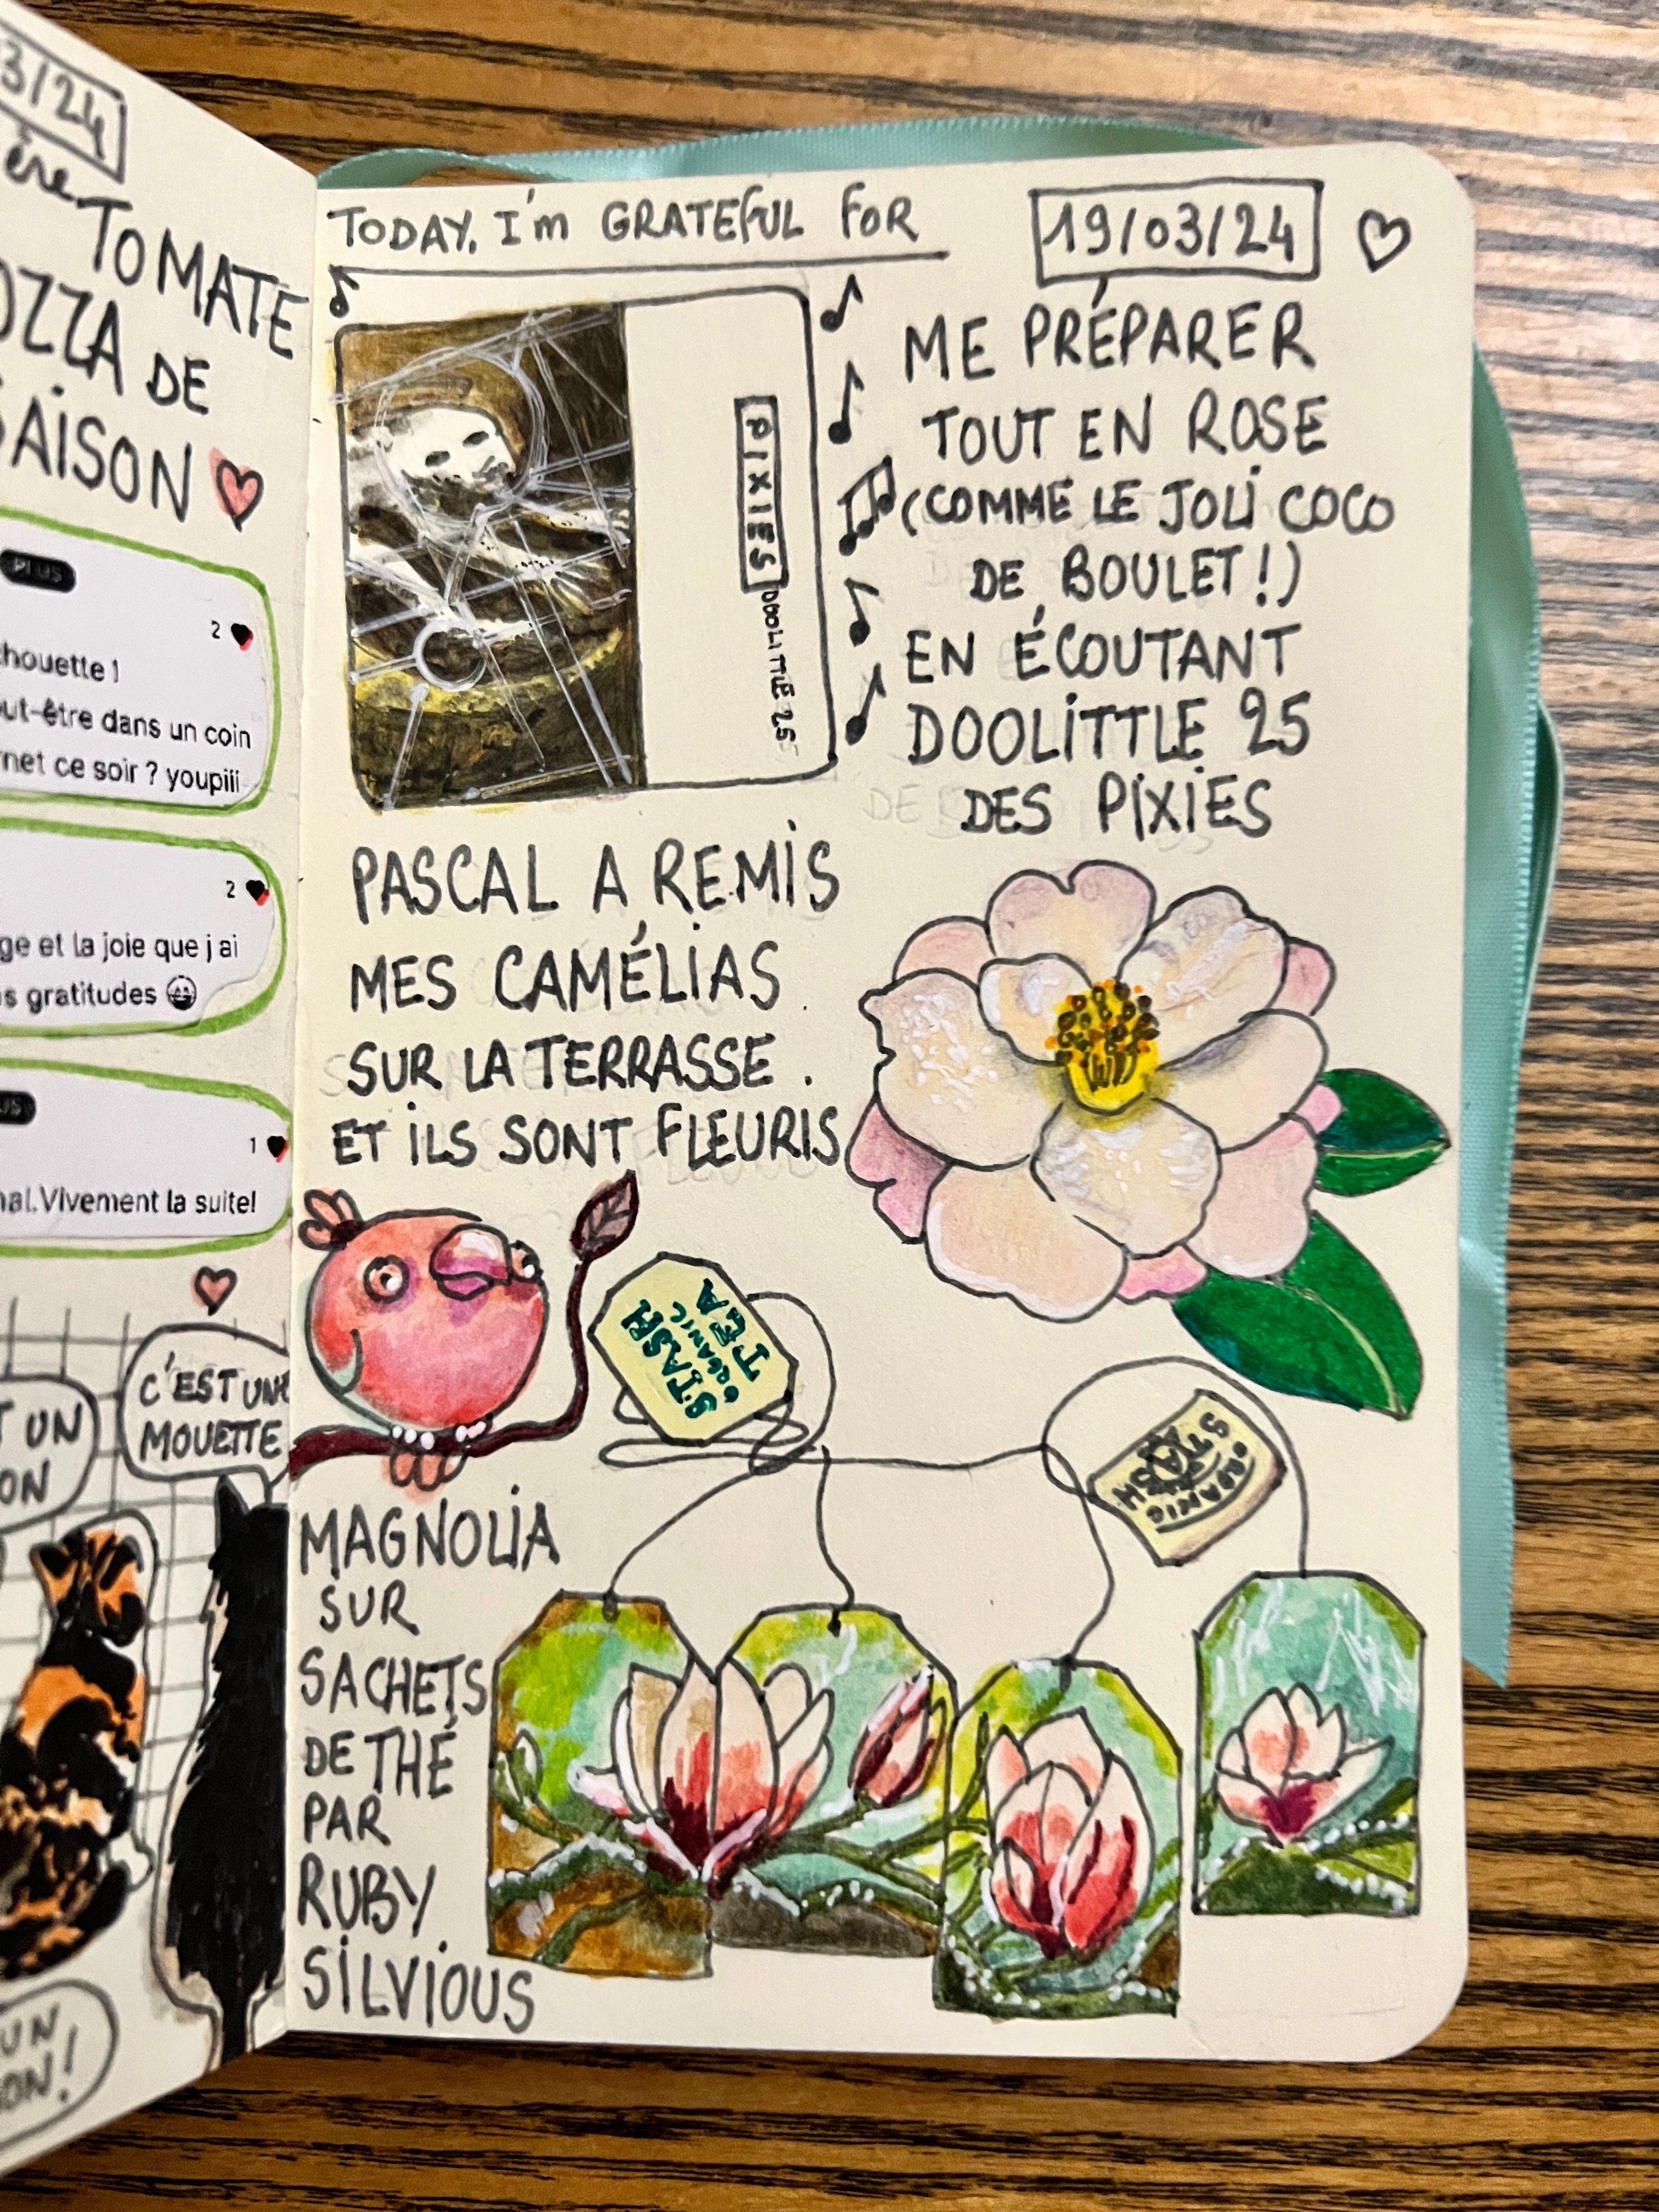 3/24
ère
TOMATE
OZZA DE
SAISON
PLUS
2
chouette !
out-être dans un coin
net ce soir ? youpiii
2
ge et la joie que j ai
s gratitudes
US
1
nal. Vivement la suite!
C'EST UNE
MOUETTE
T UN
ON
UN
ON!
TODAY, I'm GRATEFUL FOR
19/03/24
PIXIES DOOLITTLE 25
ME PRÉPARER
TOUT EN ROSE
(COMME LE JOLI COCO
DE BOULET!)
EN ÉCOUTANT
DOOLITTLE 25
DES PIXIES
PASCAL A REMIS
MES CAMÉLIAS
SUR LA TERRASSE.
ET ILS SONT FLEURIS
STASH
ORGANIC
TEA
STASH
ORGANIC
MAGNOLIA
SUR
SACHETS
DE THÉ
PAR
RUBY
SILVIOUS